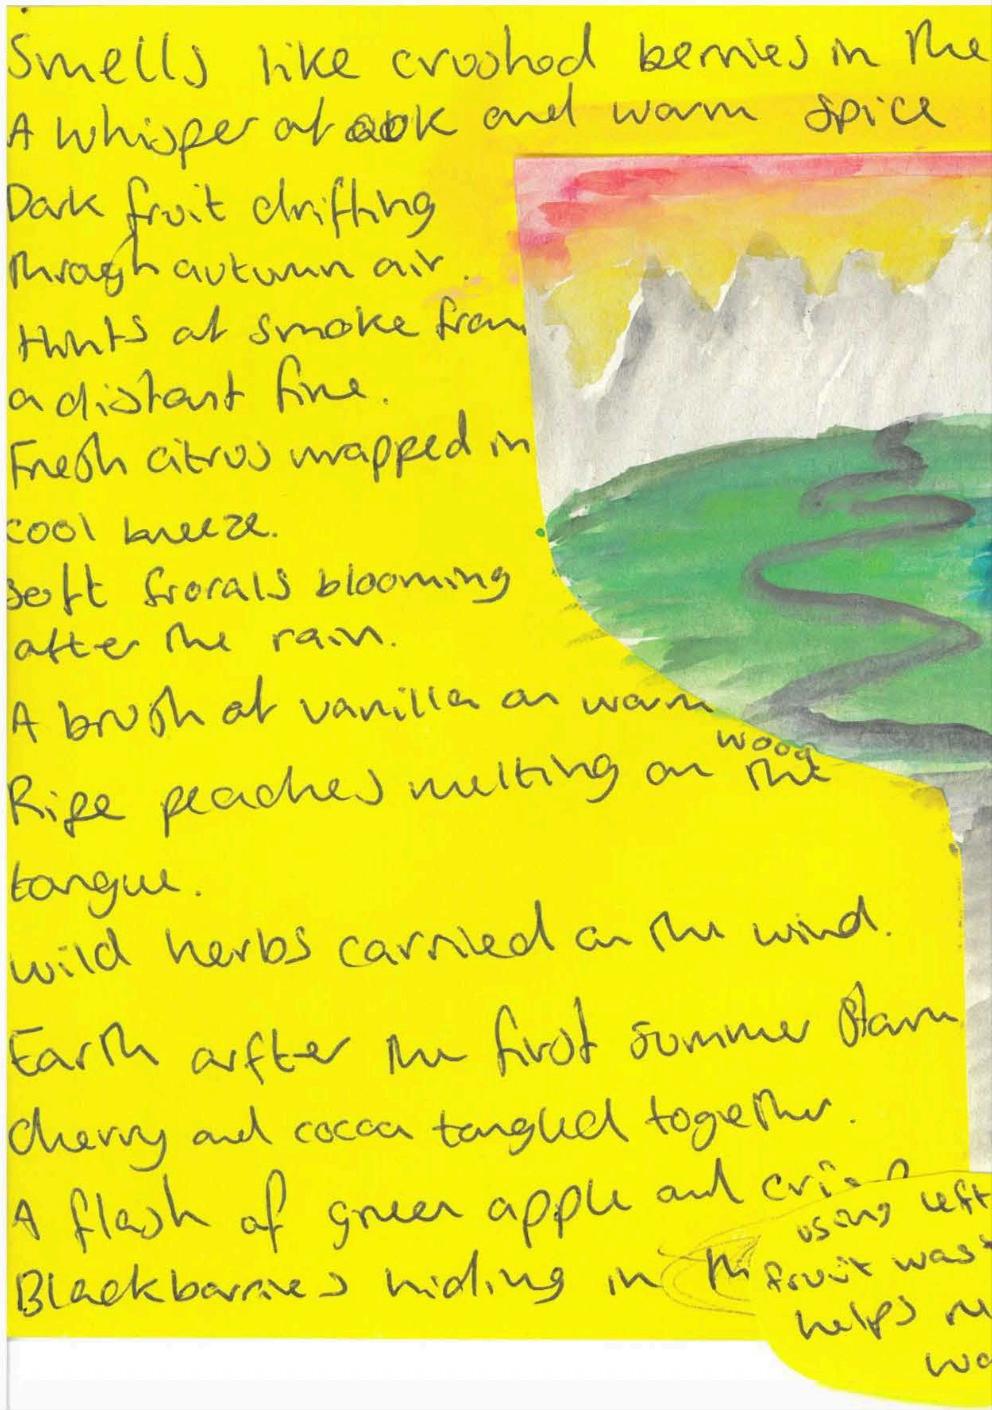 Smells like crushed berries in the
A whisper of oak and warm spice
Dark fruit drifting
through autumn air.
Hints of smoke from
a distant fire.
Fresh citrus wrapped in
cool breeze.
Soft frorals blooming
after the rain.
A brush of vanilla on warm
wood
Ripe peaches melting on the
tongue.
Wild herbs carried on the wind.
Earth arfter the first summer storm
Cherry and cocoa tangled together.
A flash of green apple and crisp
Blackbarries hiding in
using left
fruit was
helps